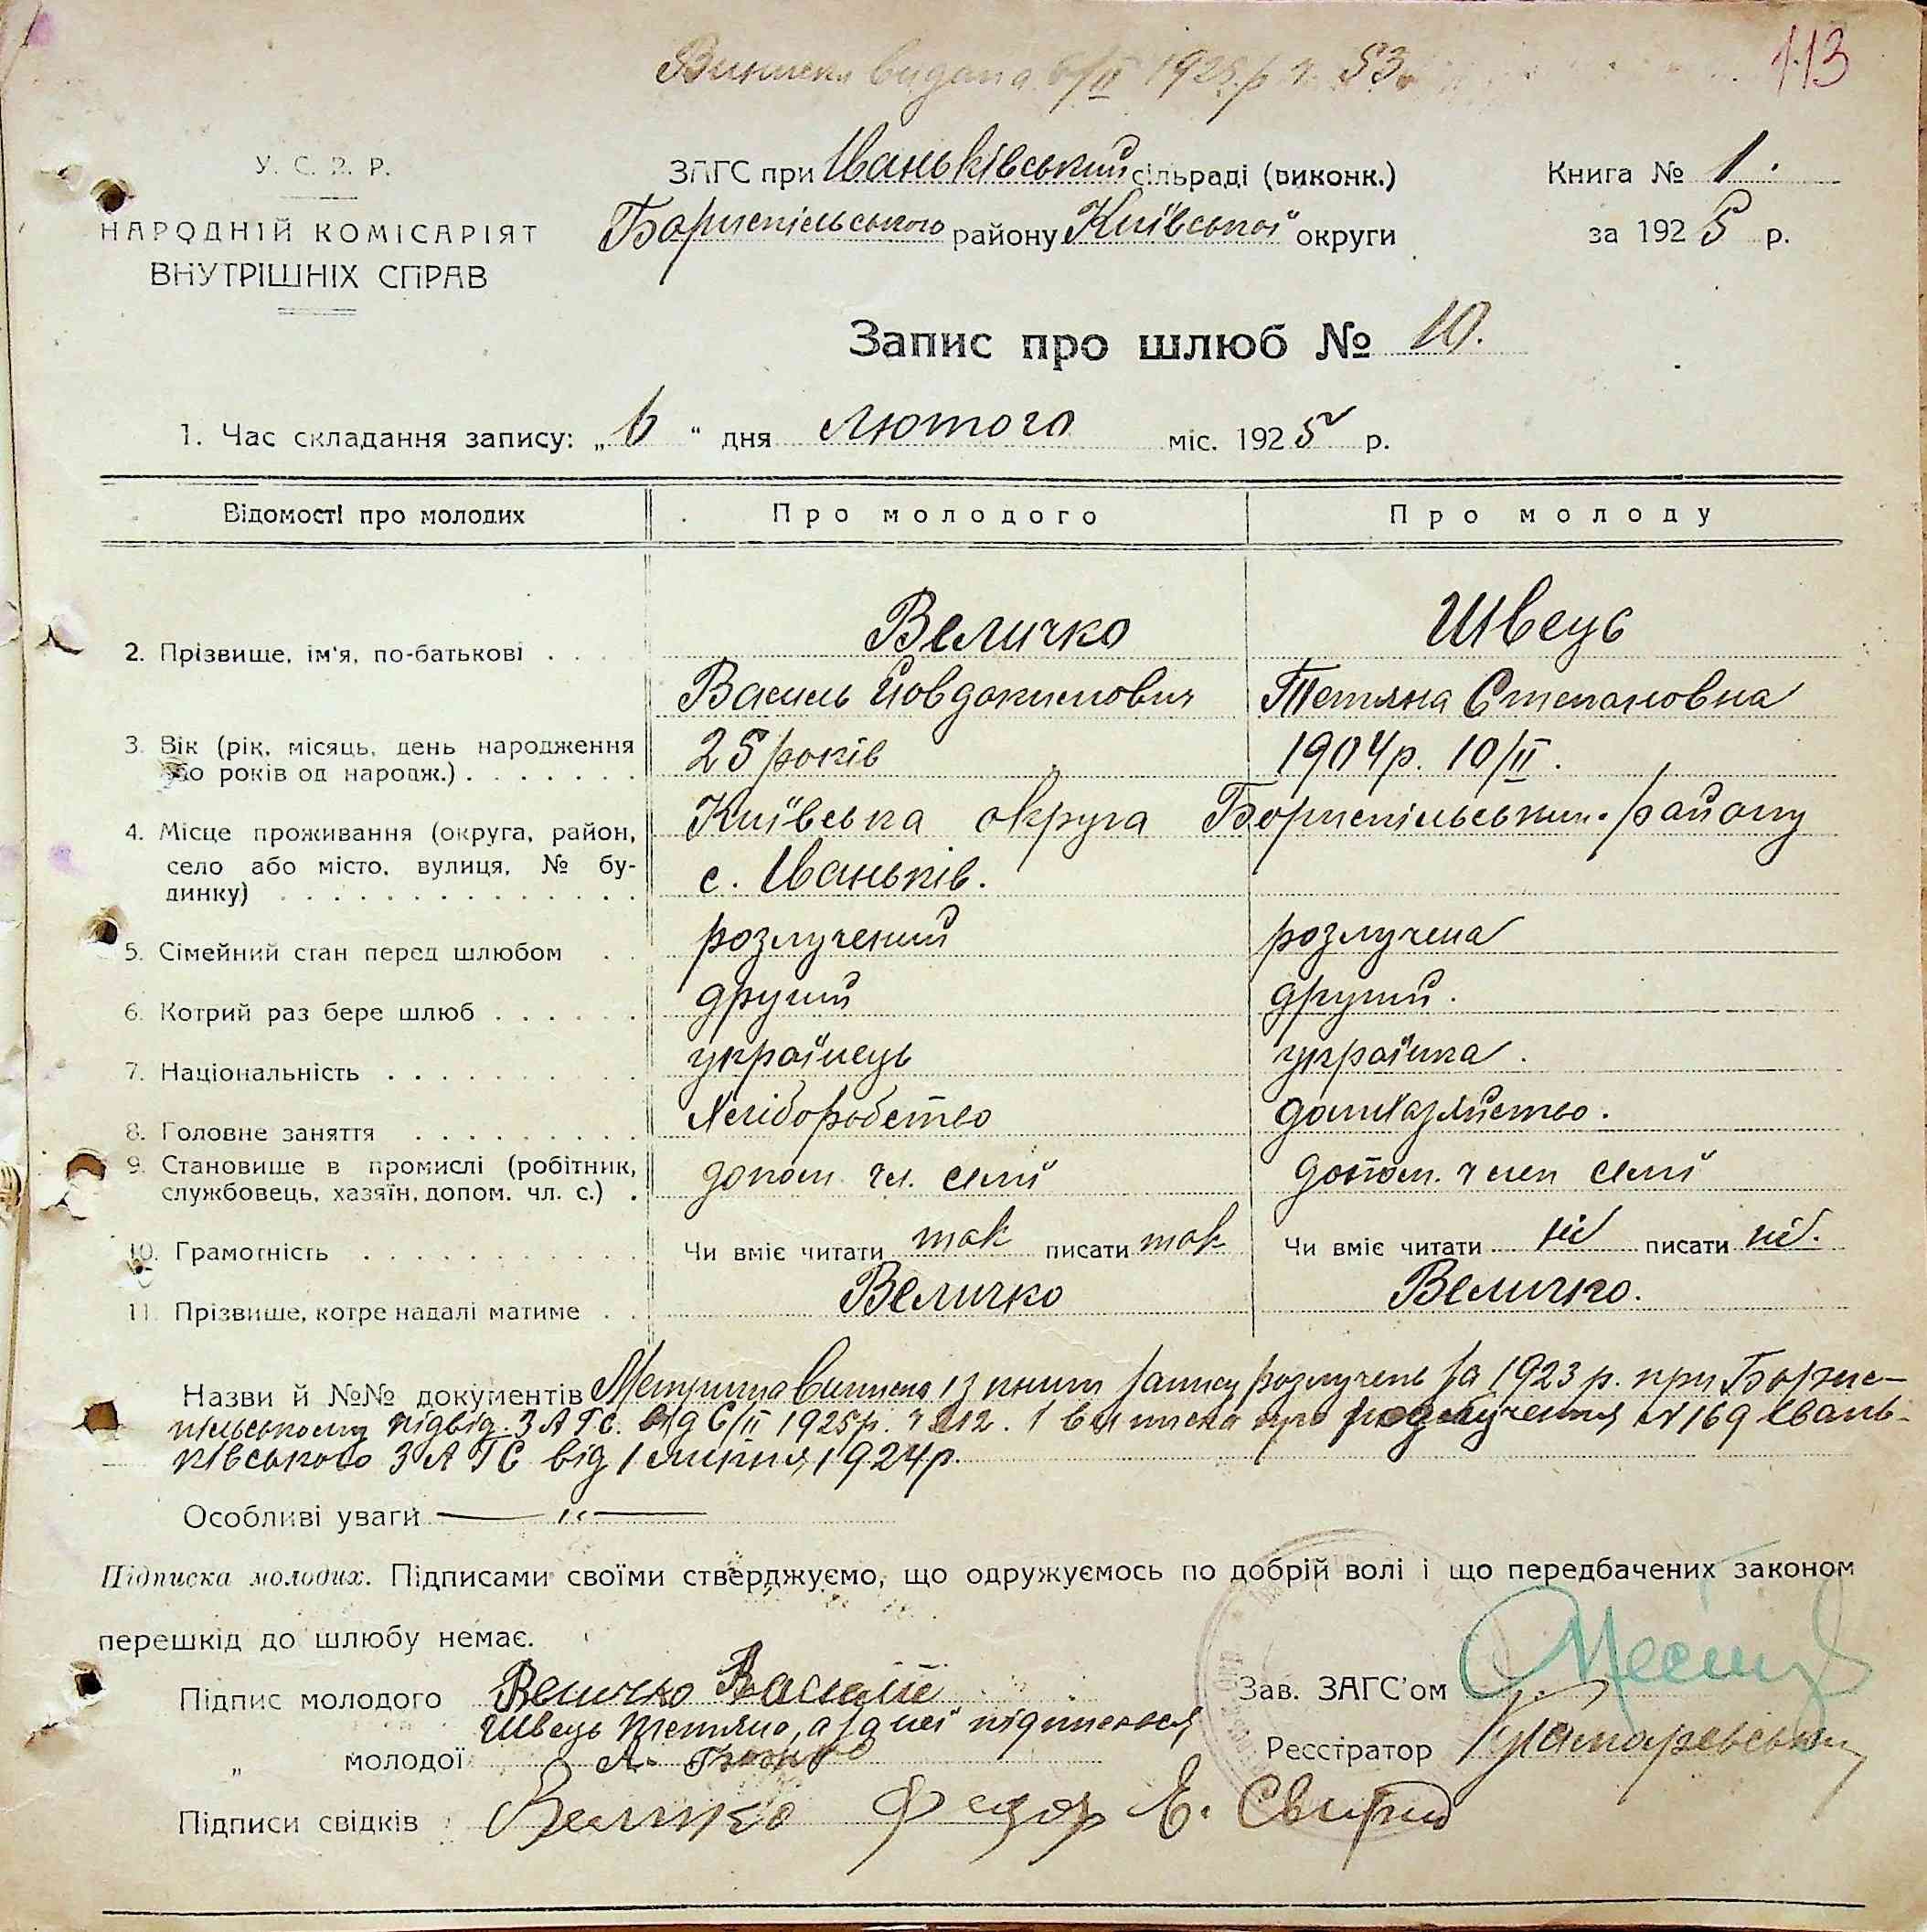 Виписка видана 6/II 1925 р. ч. 53.
113
У. С. Р. Р.
НАРОДНІЙ КОМІСАРІЯТ
ВНУТРІШНІХ СПРАВ
ЗАГС при Іваньківський сільраді (виконк.)
Бориспільського району Київської округи
Книга № 1.
за 1925 р.
Запис про шлюб № 10.
1. Час складання запису: „6“ дня лютого міс. 1925 р.
Відомості про молодих Про молодого Про молоду
2. Прізвище, ім'я, по-батькові . . . Величко Швець
Василь Йовдокимович Тетяна Степановна
3. Вік (рік, місяць, день народження 25 років 1904 р. 10/II.
до років од народж.) . . . . . . .
4. Місце проживання (округа, район, Київська округа Бориспільськ. району
село або місто, вулиця, № бу- с. Іваньків.
динку) . . . . . . . . . . . . . .
5. Сімейний стан перед шлюбом . . розлучений розлучена
6. Котрий раз бере шлюб . . . . . . другий другий.
7. Національність . . . . . . . . . . українець українка.
8. Головне заняття . . . . . . . . . Хліборобство
9. Становище в промислі (робітник, допом. чл. сімї допом. член сімї
службовець, хазяїн, допом. чл. с.) .
10. Грамотність . . . . . . . . . . . Чи вміє читати так писати так Чи вміє читати ні писати ні.
11. Прізвище, котре надалі матиме . . Величко Величко.
Назви й №№ документів виписка із книги запису розлучень за 1923 р. при Борис-
пільському підвід. ЗАГС. від 6/II 1925 р. ч. 212. І виписка про розлучення № 169 Івань-
ківського ЗАГС від 1 липня 1924 р.
Особливі уваги — „ —
Підписка молодих. Підписами своїми стверджуємо, що одружуємось по добрій волі і що передбачених законом
перешкід до шлюбу немає.
Підпис молодого Величко Василь
Швець Тетяна, а за неї підписався
„ молодої А.
Зав. ЗАГС'ом
Реєстратор
Підписи свідків Величко Федор Е. Свирид